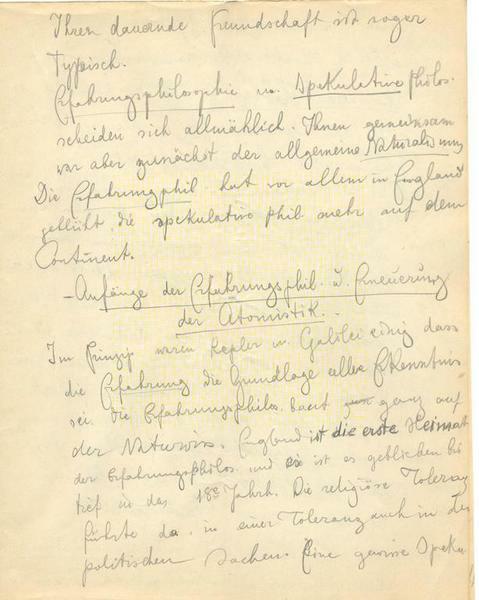 Ihren dauernde Freundschaft ist sogar
Typisch.
Erfahrungsphilosophie u. Spekulative Philos.
scheiden sich allmählich. Ihnen gemeinsam
war aber zunächst der allgemeine Naturalismus
Die Erfahrungphil. hat vor allem in England
geblüht, die spekulative Phil mehr auf dem
Continent.
- Anfänge der Erfahrungsphil. u. Erneuerung
der Atomistik. -
Im Prinzip waren Kepler u. Galilei einig dass
die Erfahrung die Grundlage aller Erkenntnis
sei. Die Erfahrungsphilos. baut ganz auf
der Naturwis. England ist die erste Heimat
der Erfahrungsphilos. und sie ist es geblieben bis
tief in das 18e Jahrh. Die religiöse Toleranz
führte da, in einer Toleranz auch in den
politischen Sachen. Eine gewisse Speku